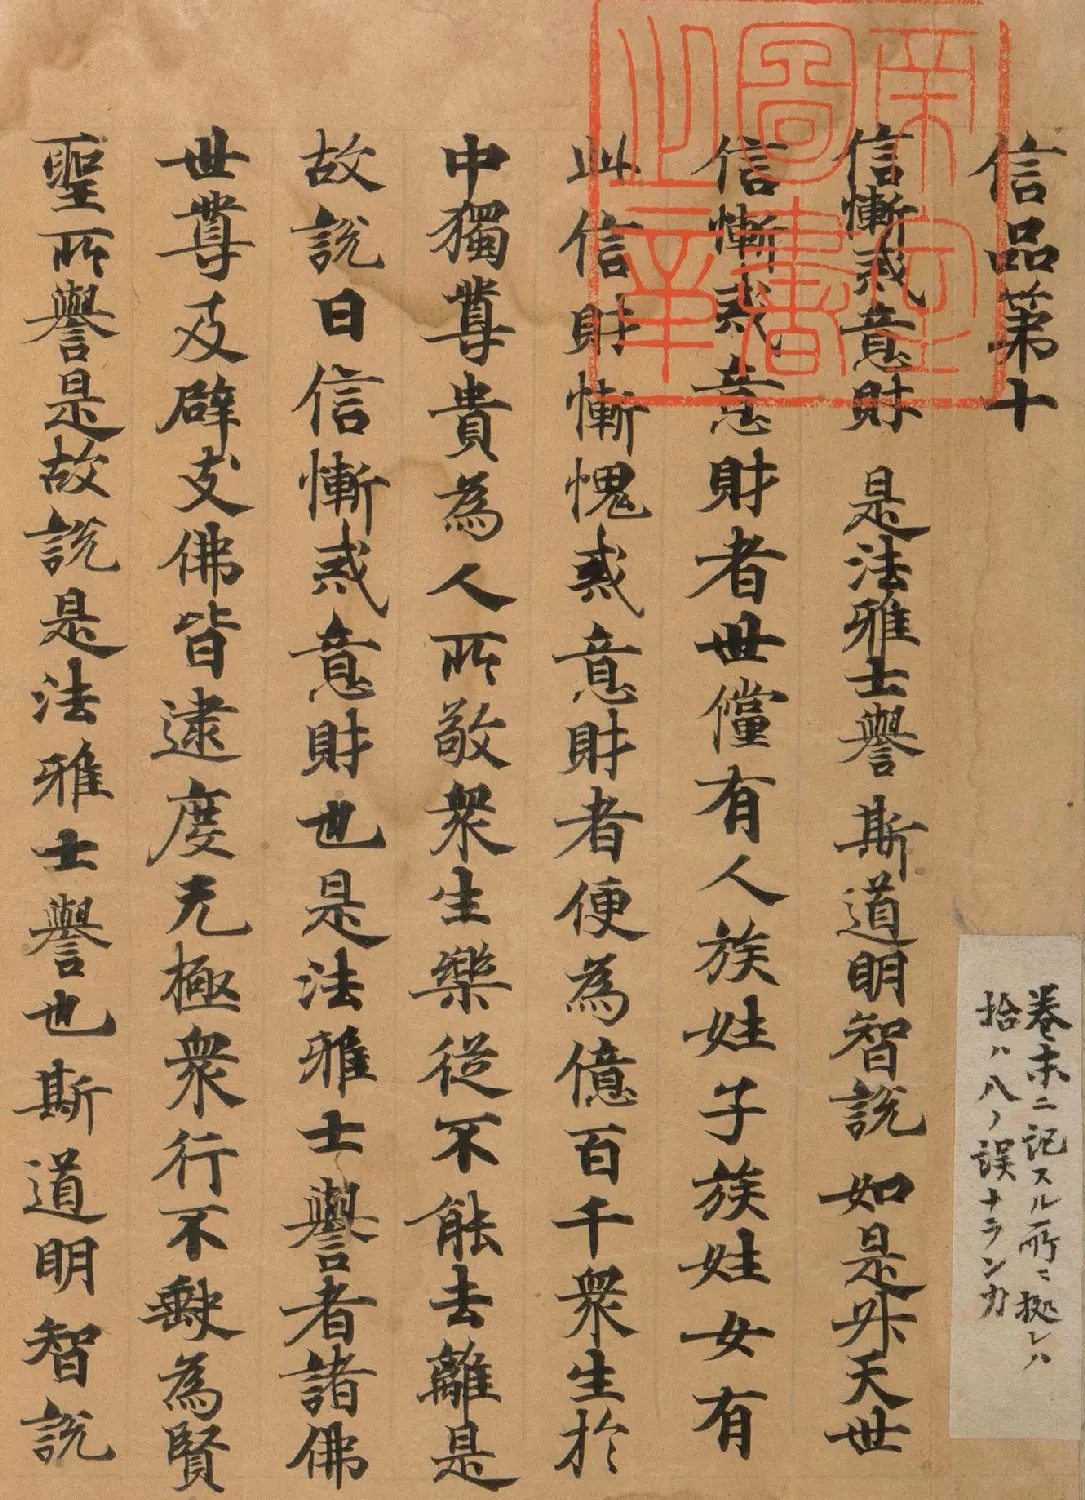 信品第十
信慚戒意財 是法雅士譽 斯道明智說 如是昇天世
信慚戒意財者世儻有人族姓子族姓女有
此信財慚愧戒意財者便為億百千衆生於
中獨尊貴為人所敬衆生樂從不能去離是
故說曰信慚戒意財也是法雅士譽者諸佛
世尊及辟支佛皆逮度无極衆行不缺為賢
聖所譽是故說是法雅士譽也斯道明智說
帝室
圖書
之章
巻末ニ記スル所ニ拠レハ
拾ハ八ノ誤ナランカ